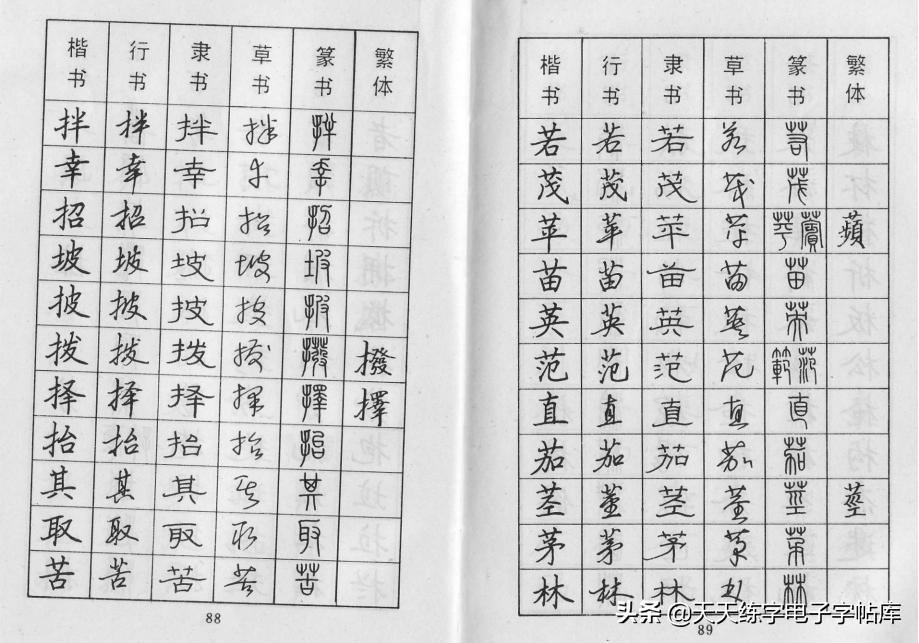 楷书 行书 隶书 草书 篆书 繁体
拌 拌 拌 拌 拌
幸 幸 幸 幸 幸
招 招 招 招 招
坡 坡 坡 坡 坡
披 披 披 披 披
拨 拨 拨 拨 撥 撥
择 择 择 择 擇 擇
抬 抬 抬 抬 抬
其 其 其 其 其
取 取 取 取 取
苦 苦 苦 苦 苦
88
楷书 行书 隶书 草书 篆书 繁体
若 若 若 若 若
茂 茂 茂 茂 茂
苹 苹 苹 苹 苹薲 蘋
苗 苗 苗 苗 苗
英 英 英 英 英
范 范 范 范 範范
直 直 直 直 直
茄 茄 茄 茄 茄
茎 茎 茎 茎 莖 莖
茅 茅 茅 茅 茅
林 林 林 林 林
89
头条 @天天练字电子字帖库